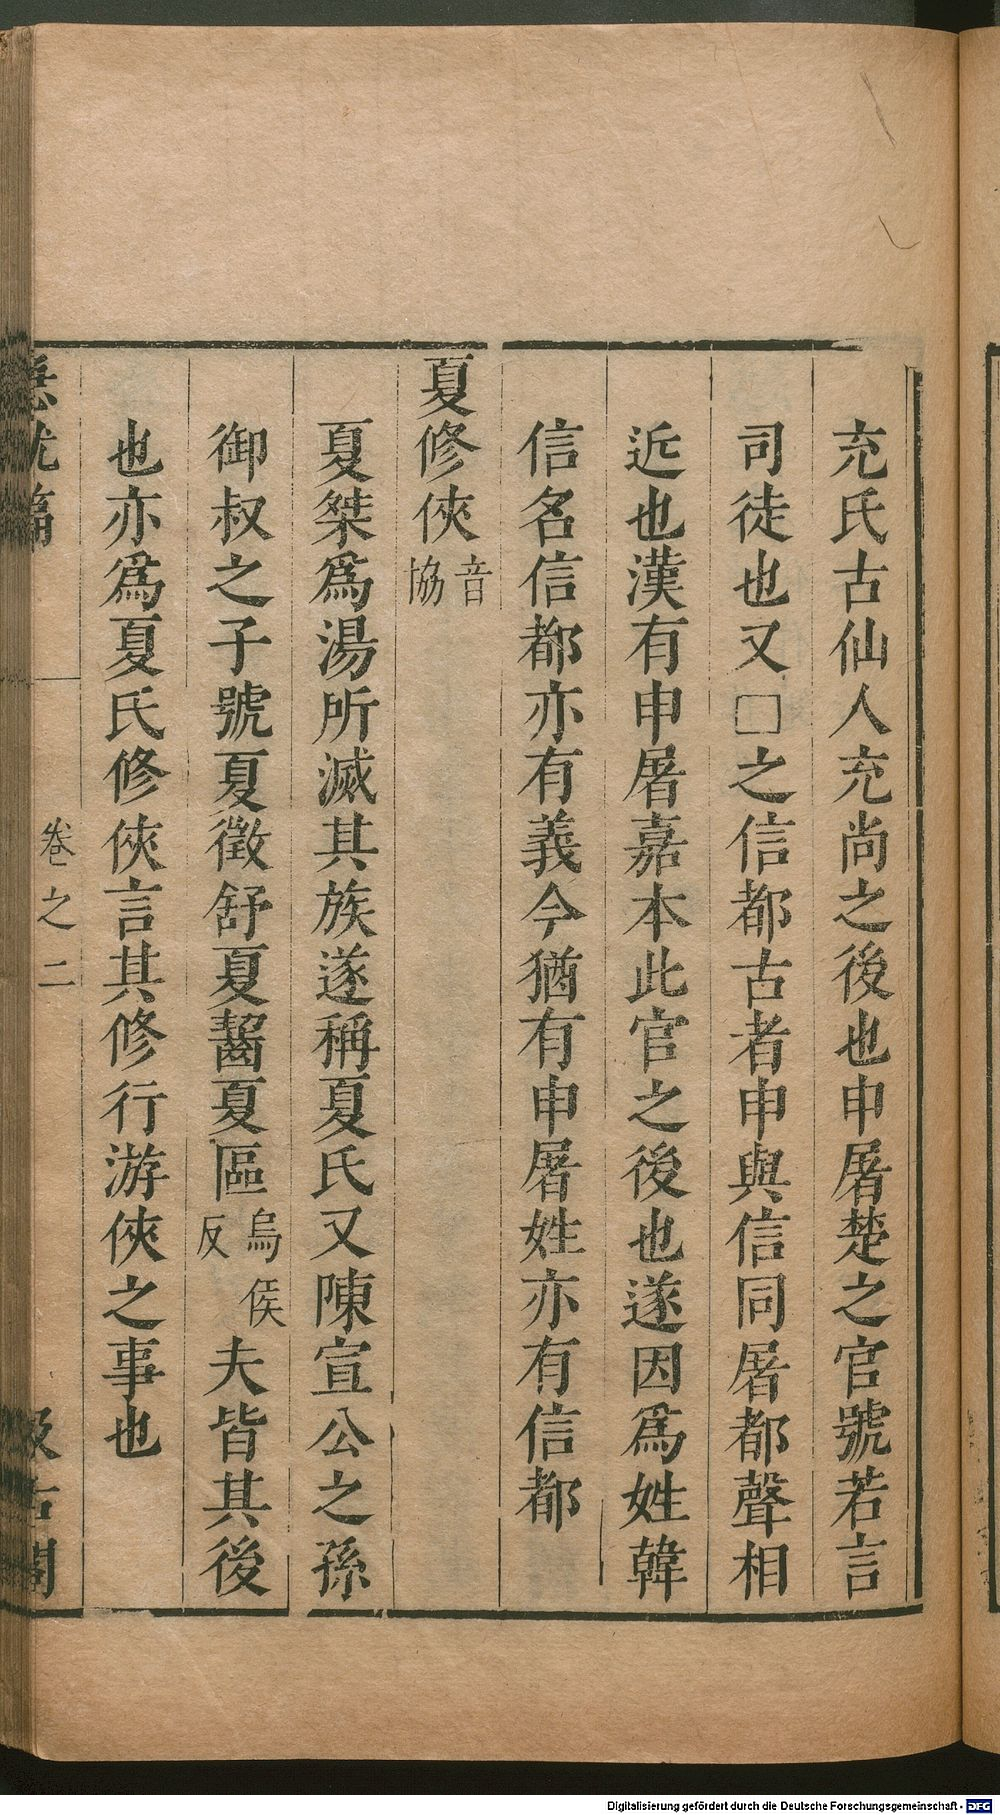 充氏古仙人充尚之後也申屠楚之官號若言
司徒也又□之信都古者申與信同屠都聲相
近也漢有申屠嘉本此官之後也遂因爲姓韓
信名信都亦有義今猶有申屠姓亦有信都
夏修俠音協
夏桀爲湯所滅其族遂稱夏氏又陳宣公之孫
御叔之子號夏徵舒夏齧夏區烏侯反夫皆其後
也亦爲夏氏修俠言其修行游俠之事也
急就篇 卷之二 汲古閣
Digitalisierung gefördert durch die Deutsche Forschungsgemeinschaft - DFG